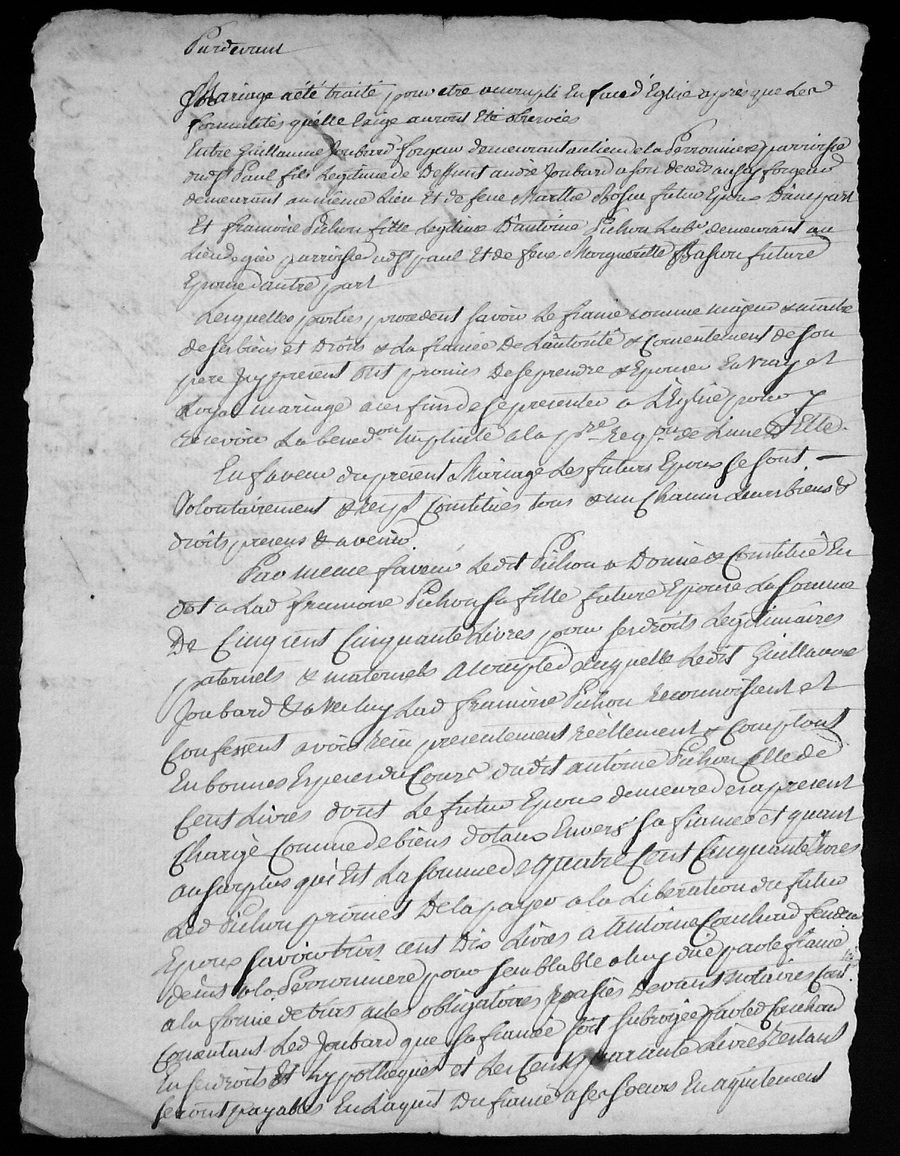 Pardevant
Mariage a été traité pour etre accompli En face d'Eglise apres que Les
formalités quelle Exige auront Eté observées
Entre Guillaume Joubard forgeur demeurant au lieu de la Perronniere parroisse
dud st Paul fils Legitime de Deffunt andré Joubard a son deced aussy forgeur
demeurant au même Lieu Et de feue Marthe futur Epoux D'une part
Et francoise Pichon fille Legitime D'antoine Pichon Labr demeurant au
Lieu de parroisse dud st paul Et de feue Margueritte Basson future
Epouse d'autre part
Lesquelles parties procedent savoir Le fiancé comme majeur & maitre
de ses biens et Droits & La fiancée De L'autorité & Consentement de son
pere Icy present Ont promis De se prendre & Epouser En vray et
Loyal mariage a ces fins de se presenter a L'Eglise pour y
recevoir La bened.on Nuptiale a la pre Req.on de L'une D'Elle
En faveur du present Mariage Les futurs Epoux se sont
Volontairement & resp.t Constitués tous & un Chacun Leurs biens &
droits presens & avenir
Par même faveur Ledit Pichon a Donné & Constitué En
dot a Lad francoise Pichon sa fille future Epouse La somme
De Cinq cent Cinquante Livres pour ses droits Legitimaires
paternels & maternels a compte de Laquelle Ledit Guillaume
Joubard & avec luy Lad francoise Pichon reconnoissent et
Confessent avoir reçu presentement réellement & Comptant
En bonnes Especes du Cours dudit antoine Pichon Celle de
Cent Livres dont Le futur Epoux demeure des apresent
Chargé Comme de biens dotaux Envers sa fiancée et quant
au surplus qui Est La somme de quatre Cent Cinquante Livres
Led Pichon promet De la payer a la Liberation du futur
Epoux savoir trois cent Dix Livres a Antoine Couchoud
a la Perronniere pour semblable a luy due par le fiancé
a la forme de trois actes obligatoires passés Devant notaires
Consentant Led Joubard que sa fiancée soit subrogée par led Couchoud
En ses droits Et hypotheques et Les Cent quarante Livres restant
seront payables En Laquit Du fiancé a ses soeurs En aquitement